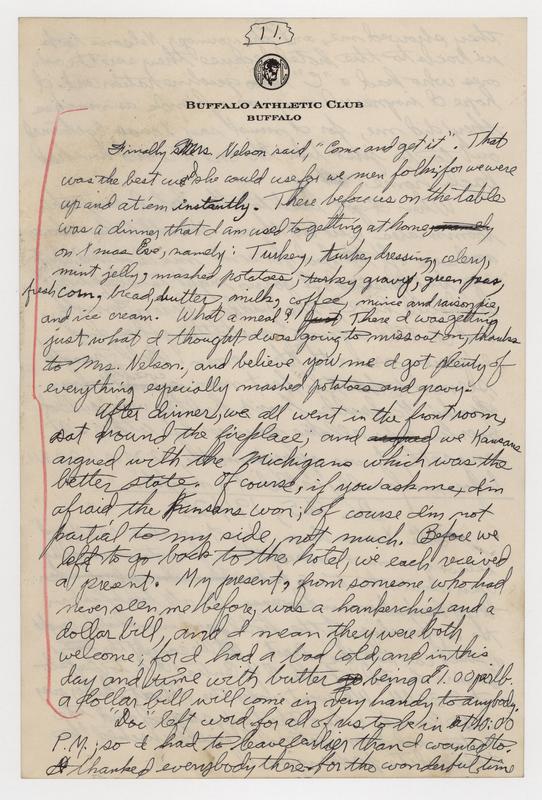 11.
BUFFALO ATHLETIC CLUB
BUFFALO
Finally Mrs. Nelson said, "Come and get it". That
was the best cue she could use for we men folks; for we were
up and at 'em instantly. There before us on the table
was a dinner that I am used to getting at home
on Xmas Eve, namely: Turkey, turkey dressing, celery,
mint jelly, mashed potatoes, turkey gravy, green peas,
fresh corn, bread, butter, milk, coffee, mince and raisin pie,
and ice cream. What a meal? just There I was getting
just what I thought I was going to miss out on, thanks
to Mrs. Nelson, and believe you me I got plenty of
everything especially mashed potatoes and gravy.
After dinner, we all went in the front room,
sat around the fireplace, and argued we Kansans
argued with the Michigans which was the
better state. Of course, if you ask me, I'm
afraid the Kansans won; of course I'm not
partial to my side, not much. Before we
left to go back to the hotel, we each received
a present. My present, from someone who had
never seen me before, was a hankerchief and a
dollar bill, and I mean they were both
welcome; for I had a bad cold, and in this
day and time with butter go being $1.00 per lb.
a dollar bill will come in very handy to anybody.
"Doc" left word for all of us to be in at 10:00
P.M.; so I had to leave earlier than I wanted to.
I thanked everybody there for the wonderful time